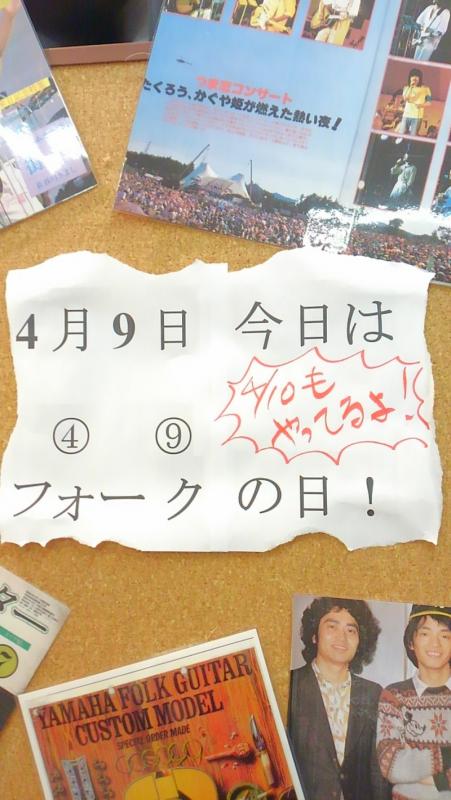 つま恋コンサート
たくろう、かぐや姫が燃えた熱い夜!
4月9日 今日は
4/10も
やってるよ!
④ ⑨
フォーク の日!
ター
7
YAMAHA FOLK GUITAR
CUSTOM MODEL
SPECIAL ORDER MADE